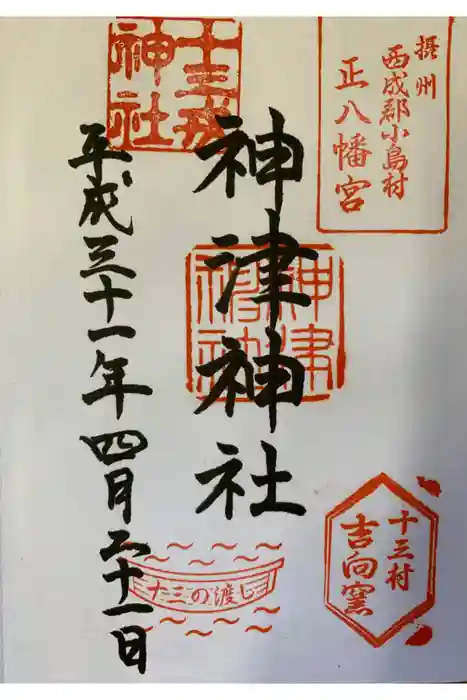 摂州
西成郡小島村
正八幡宮
十三村
吉向窯
神津神社
十三戎
神社
平成三十一年四月二十一日
十三の渡し